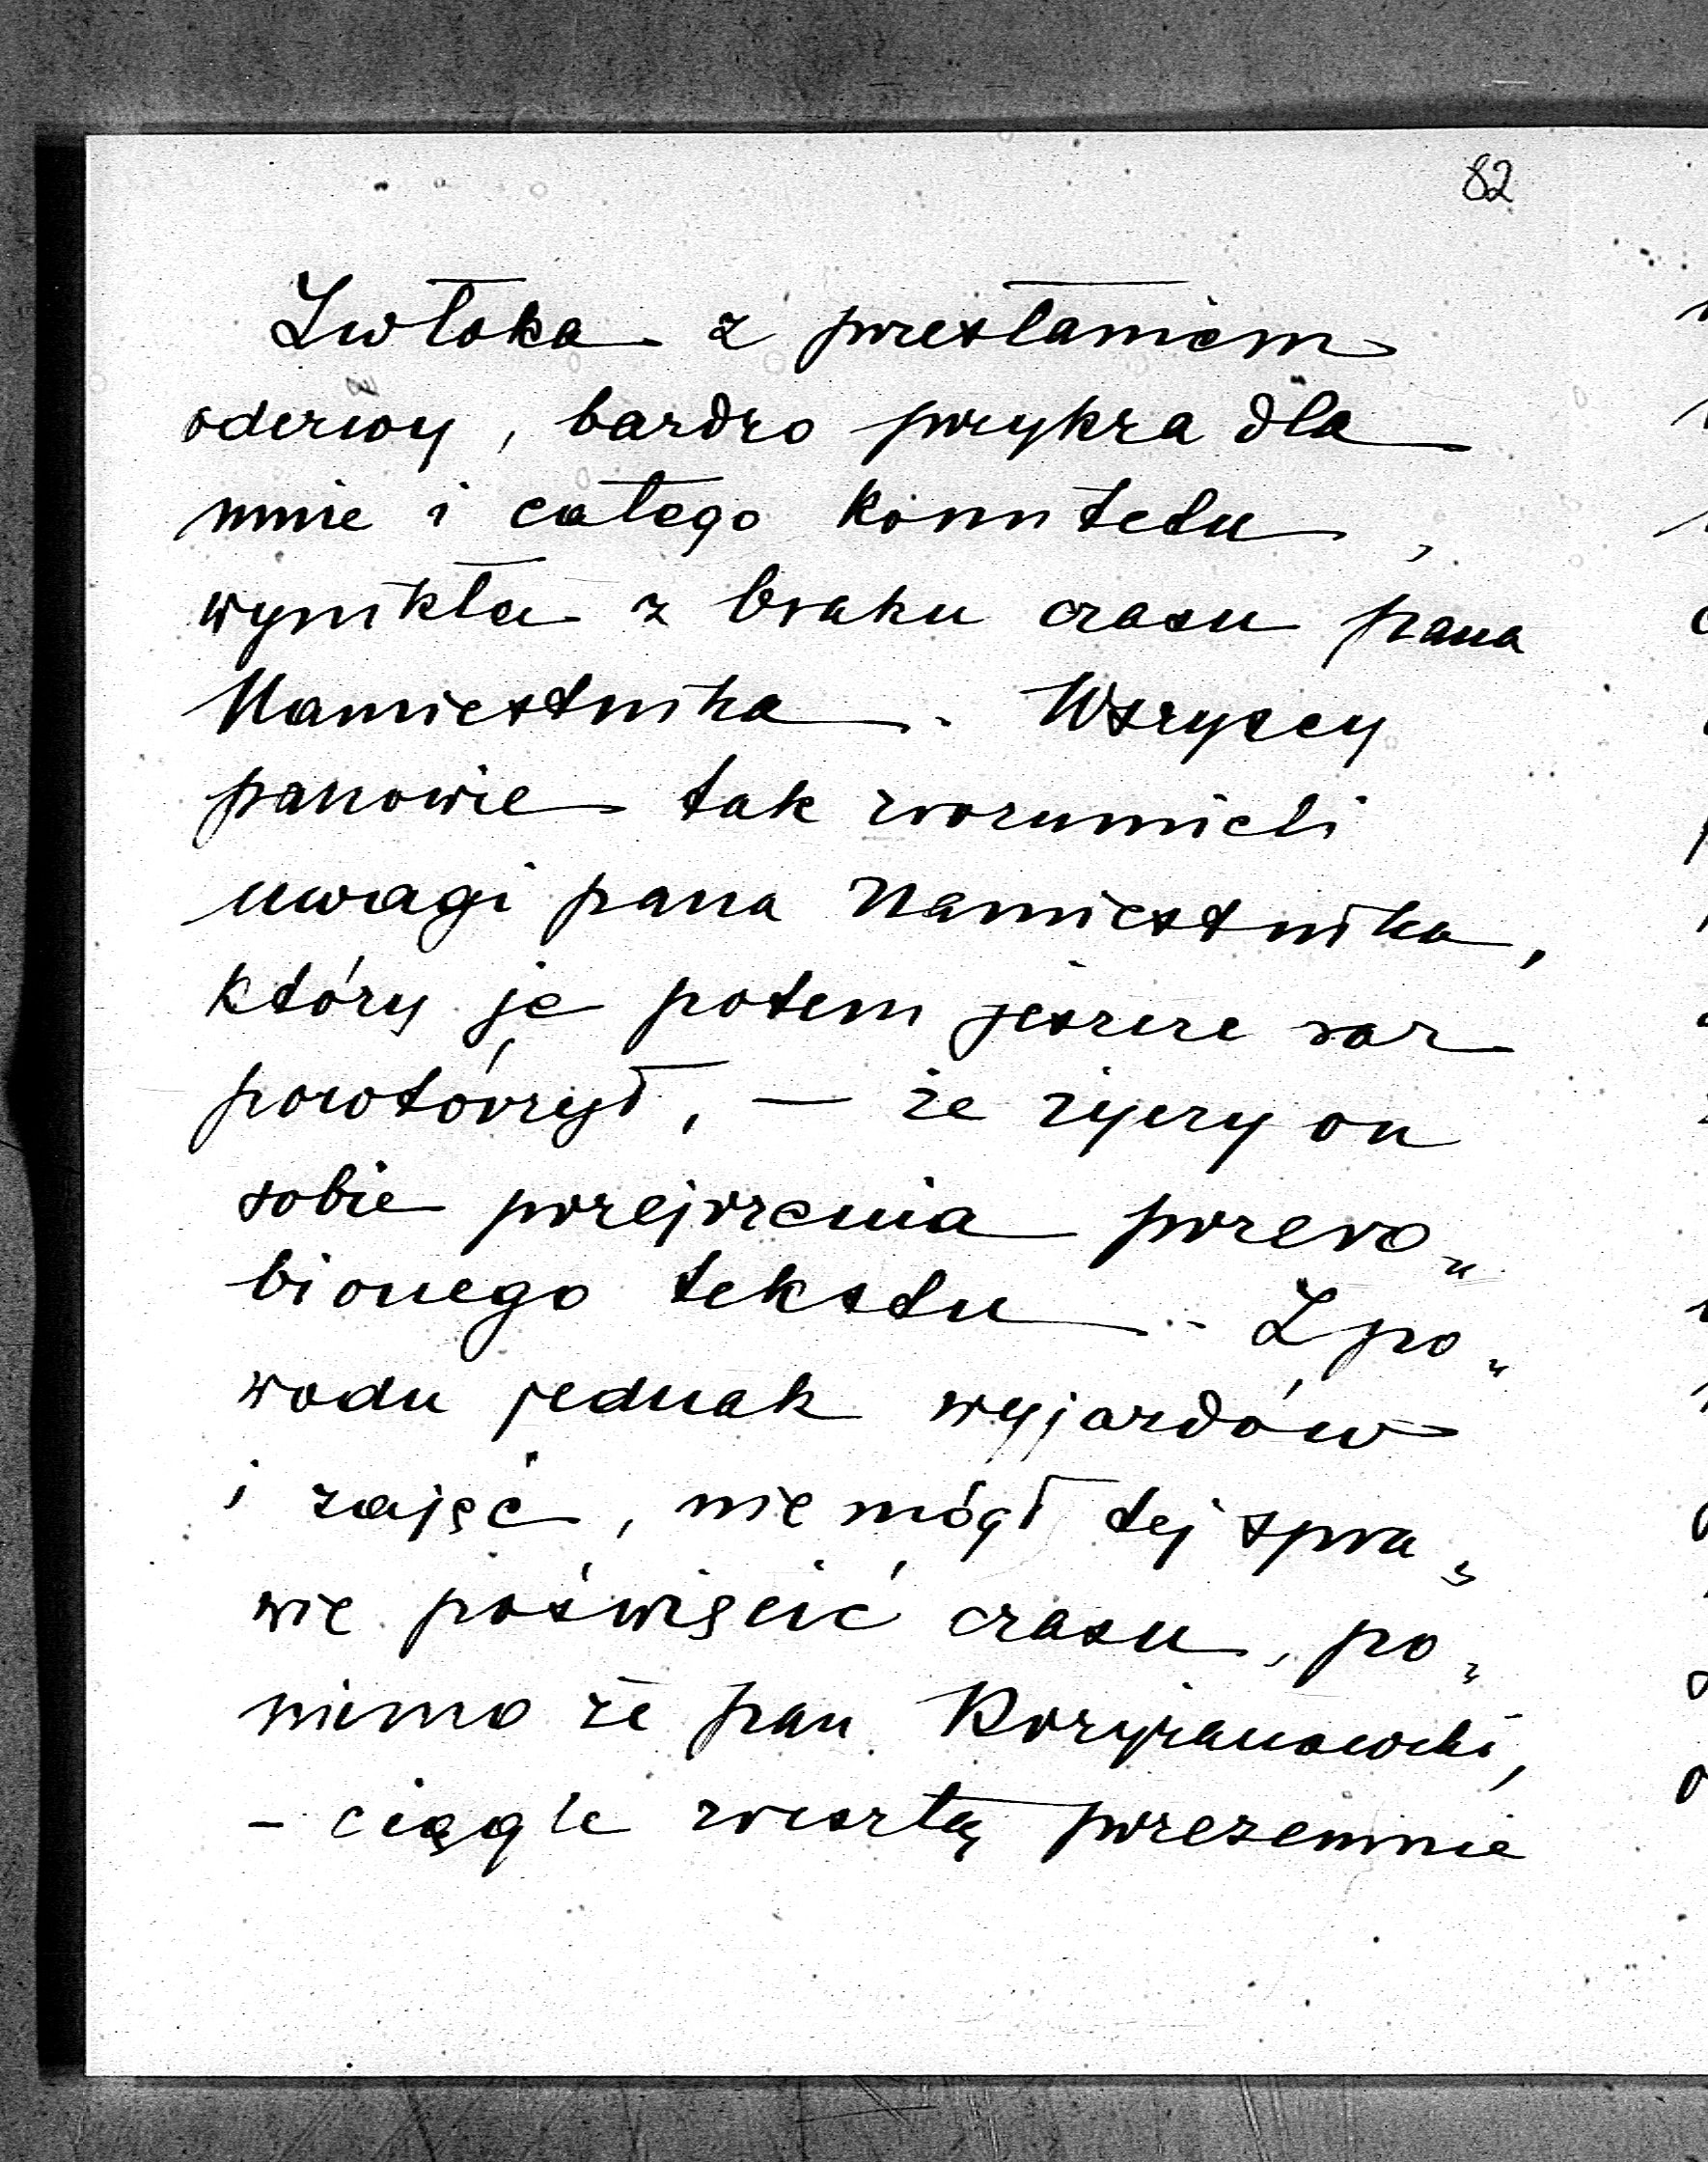 82
Zwłoka z przesłaniem
odezwy, bardzo przykra dla
mnie i całego komitetu,
wynikła z braku czasu pana
Namiestnika. Wszyscy
panowie tak zrozumieli
uwagi pana Namiestnika,
który je potem jeszcze raz
powtórzył, — że życzy on
sobie przejrzenia przero„
bionego tekstu. Z po„
wodu jednak wyjazdów
i zajęć, nie mógł tej spra„
wie poświęcić czasu, po„
mimo że pan Krzyżanowski,
– ciągle zresztą przezemnie